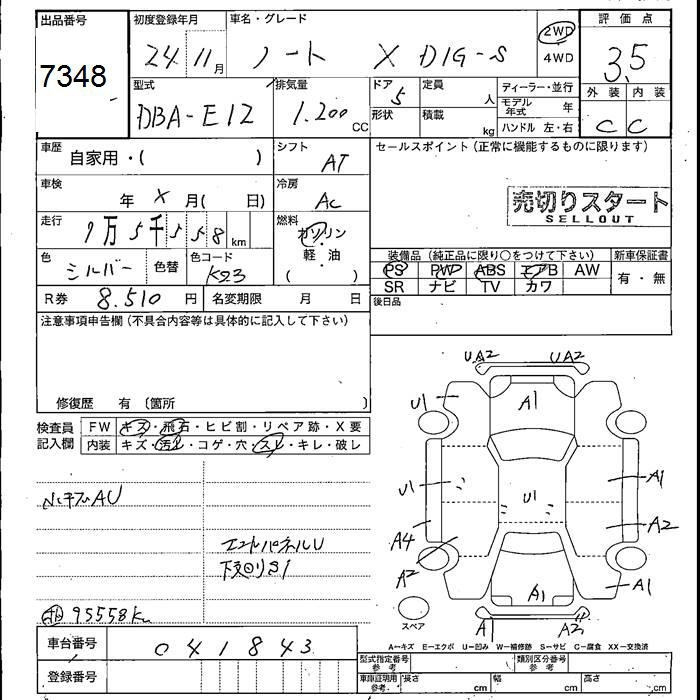 出品番号 初度登録年月 車名・グレード 評価点
7348 24 11月 ノート X DIG-S 2WD 4WD 3.5
型式 排気量 ドア 定員 ディーラー・並行 外装 内装
DBA-E12 1.200 CC 5 人 モデル年式 年 C C
形状 積載 kg ハンドル 左・右
車歴 自家用・( ) シフト AT セールスポイント(正常に機能するものに限ります)
車検 年 X 月( 日) 冷房 AC
売切りスタート
SELLOUT
走行 9万5千558km 燃料 ガソリン
軽・油
( )
色 シルバー 色替 色コード K23
装備品(純正品に限り○をつけて下さい) 新車保証書
PS PW ABS エアB AW 有・無
SR ナビ TV カワ
R券 8.510円 名変期限 月 日 後日品
注意事項申告欄(不具合内容等は具体的に記入して下さい)
修復歴 有 〔箇所 〕
検査員記入欄 FW キズ・飛石・ヒビ割・リペア跡・X要
内装 キズ・汚れ・コゲ・穴・スレ・キレ・破レ
UA2 UA2
U1 A1
U1 U1 A1
A4 A2
A2 A1 A1
スペア A1 A2
AU
エンドパネルU
下回りS1
95558km
A=キズ E=エクボ U=凹み W=補修跡 S=サビ C=腐食 XX=交換済
車台番号 041843
登録番号
型式指定番号 参考 類別区分番号 参考
車庫証明用 参考 長さ cm 幅 cm 高さ cm